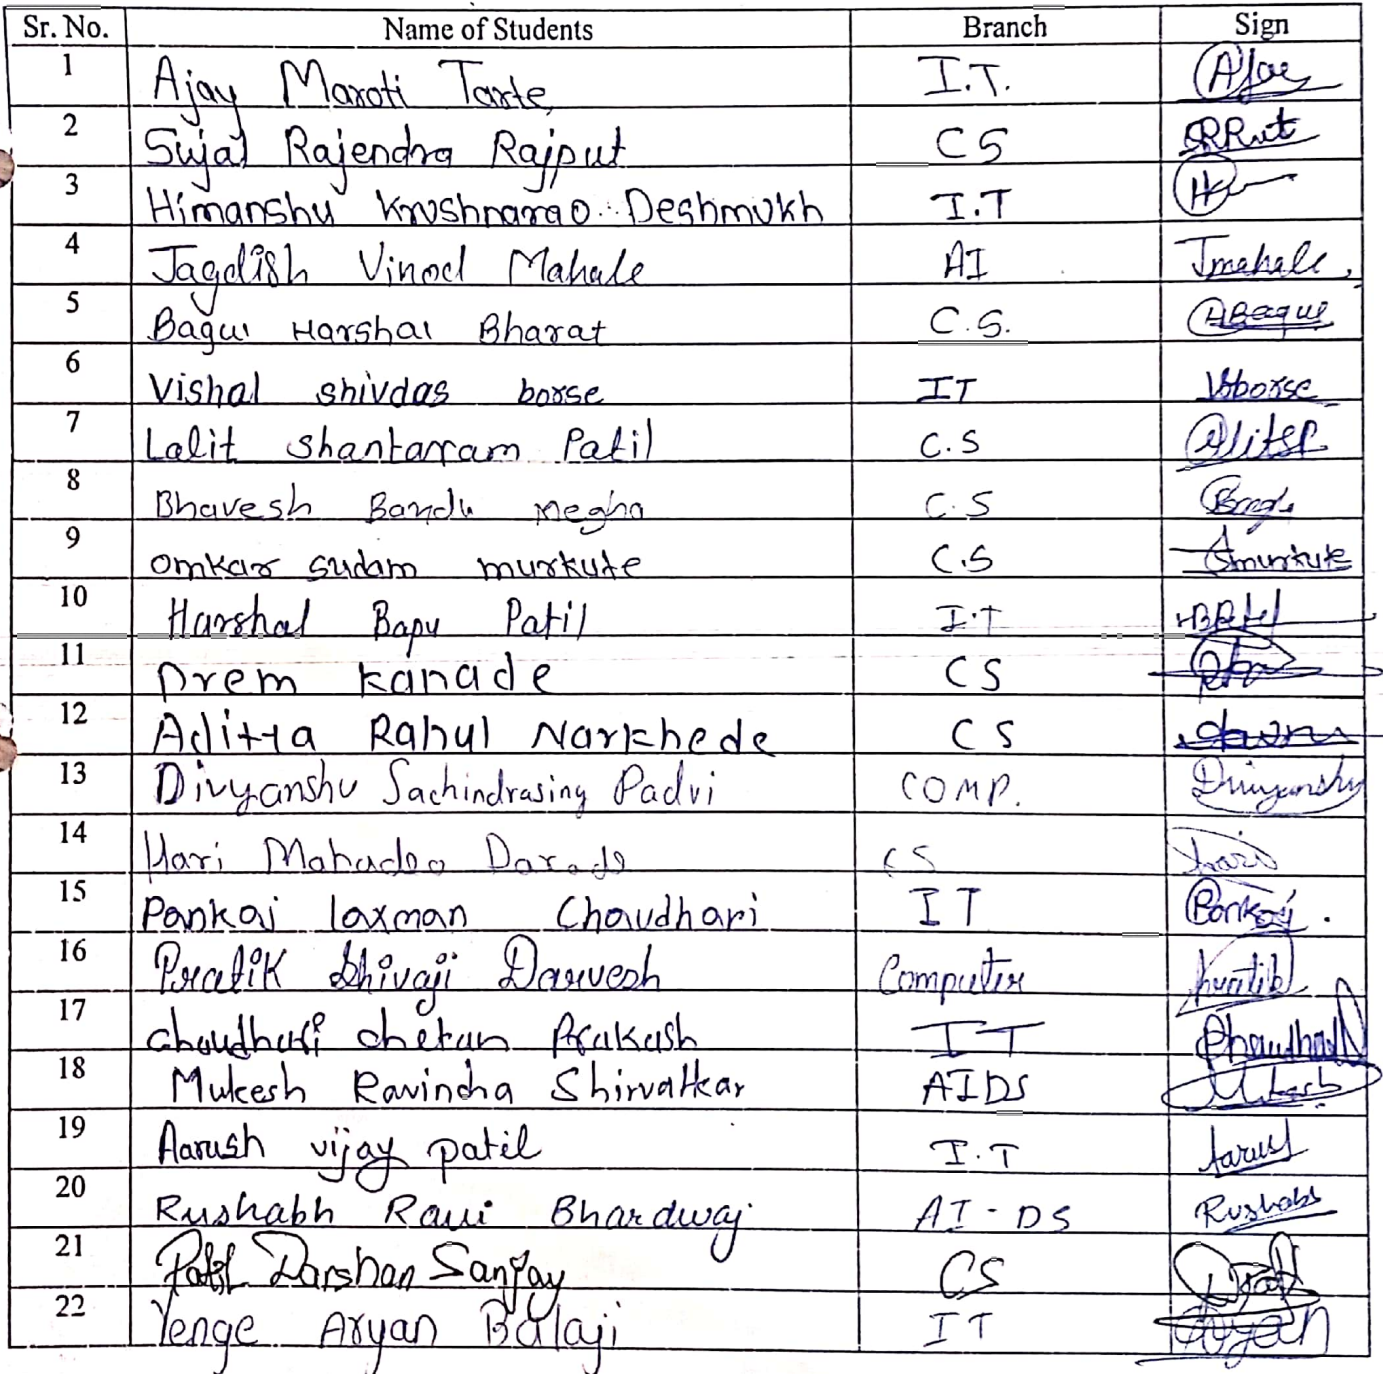 Sr. No. Name of Students Branch Sign
1 Ajay Maroti Tarte I.T. Ajay
2 Sujal Rajendra Rajput CS RRut
3 Himanshu Krushnarao Deshmukh I.T
4 Jagdish Vinod Mahale AI Jmahale
5 Bagul Harshal Bharat C.S. HBagul
6 Vishal shivdas borse IT Vsborse
7 Lalit Shantarram Patil C.S LalitSP
8 Bhavesh Bandu megha C.S
9 omkar sudam murkute C.S Omurkute
10 Harshal Bapu Patil I.T HBPatil
11 Prem kanade CS
12 Aditya Rahul Narkhede CS
13 Divyanshu Sachindrasing Padvi COMP. Divyanshu
14 Hari Mahadeo Darade CS hari
15 Pankaj laxman Choudhari IT Pankaj
16 Pratik Shivaji Darvesh Computer pratik
17 choudhari chetan Prakash IT
18 Mukesh Ravindra Shirvalkar AIDS Mukesh
19 Aarush vijay patil I.T Aarush
20 Rushabh Ravi Bhardwaj AI-DS Rushabh
21 Patil Darshan Sanjay CS
22 Yenge Aryan Balaji IT Aryan